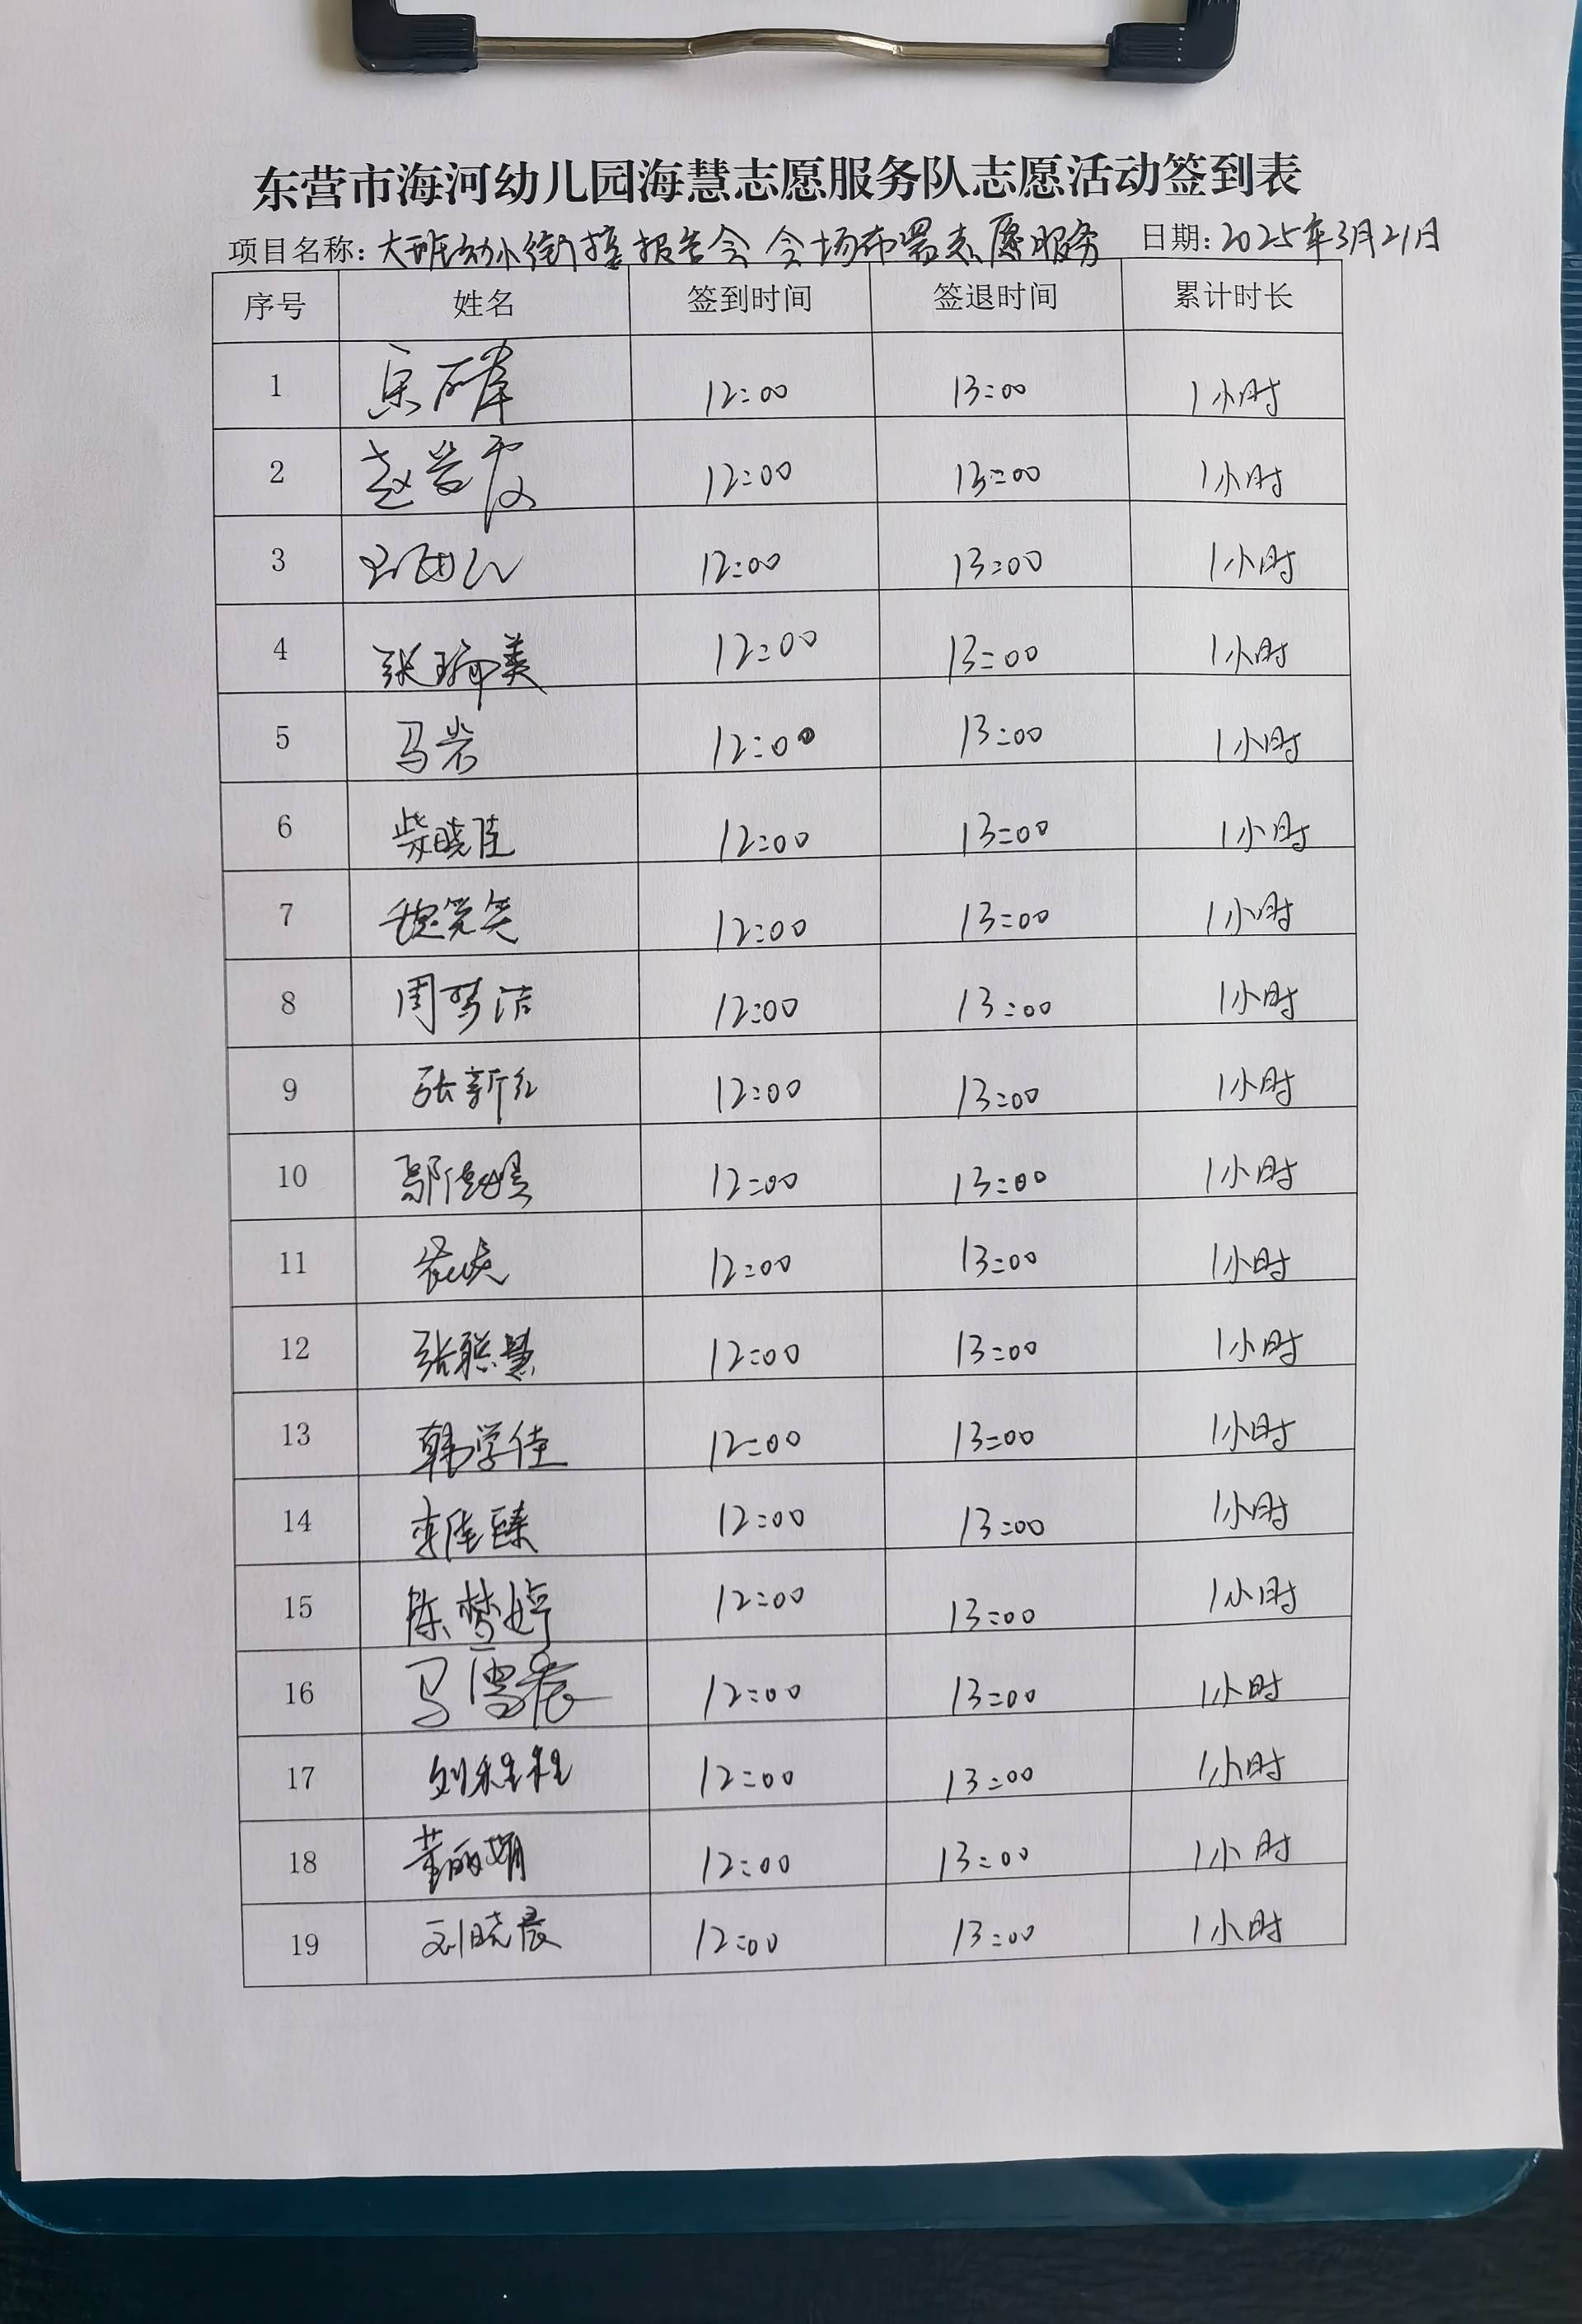 东营市海河幼儿园海慧志愿服务队志愿活动签到表
项目名称:大班幼小衔接报告会会场布署志愿服务 日期:2025年3月21日
序号 姓名 签到时间 签退时间 累计时长
1 12:00 13:00 1小时
2 赵岩霞 12:00 13:00 1小时
3 12:00 13:00 1小时
4 张瑜美 12:00 13:00 1小时
5 马岩 12:00 13:00 1小时
6 柴晓佳 12:00 13:00 1小时
7 魏笑笑 12:00 13:00 1小时
8 周梦洁 12:00 13:00 1小时
9 张新红 12:00 13:00 1小时
10 12:00 13:00 1小时
11 12:00 13:00 1小时
12 张聪慧 12:00 13:00 1小时
13 韩学佳 12:00 13:00 1小时
14 李佳臻 12:00 13:00 1小时
15 陈梦婷 12:00 13:00 1小时
16 马雪晨 12:00 13:00 1小时
17 刘程程 12:00 13:00 1小时
18 董丽娟 12:00 13:00 1小时
19 刘晓晨 12:00 13:00 1小时